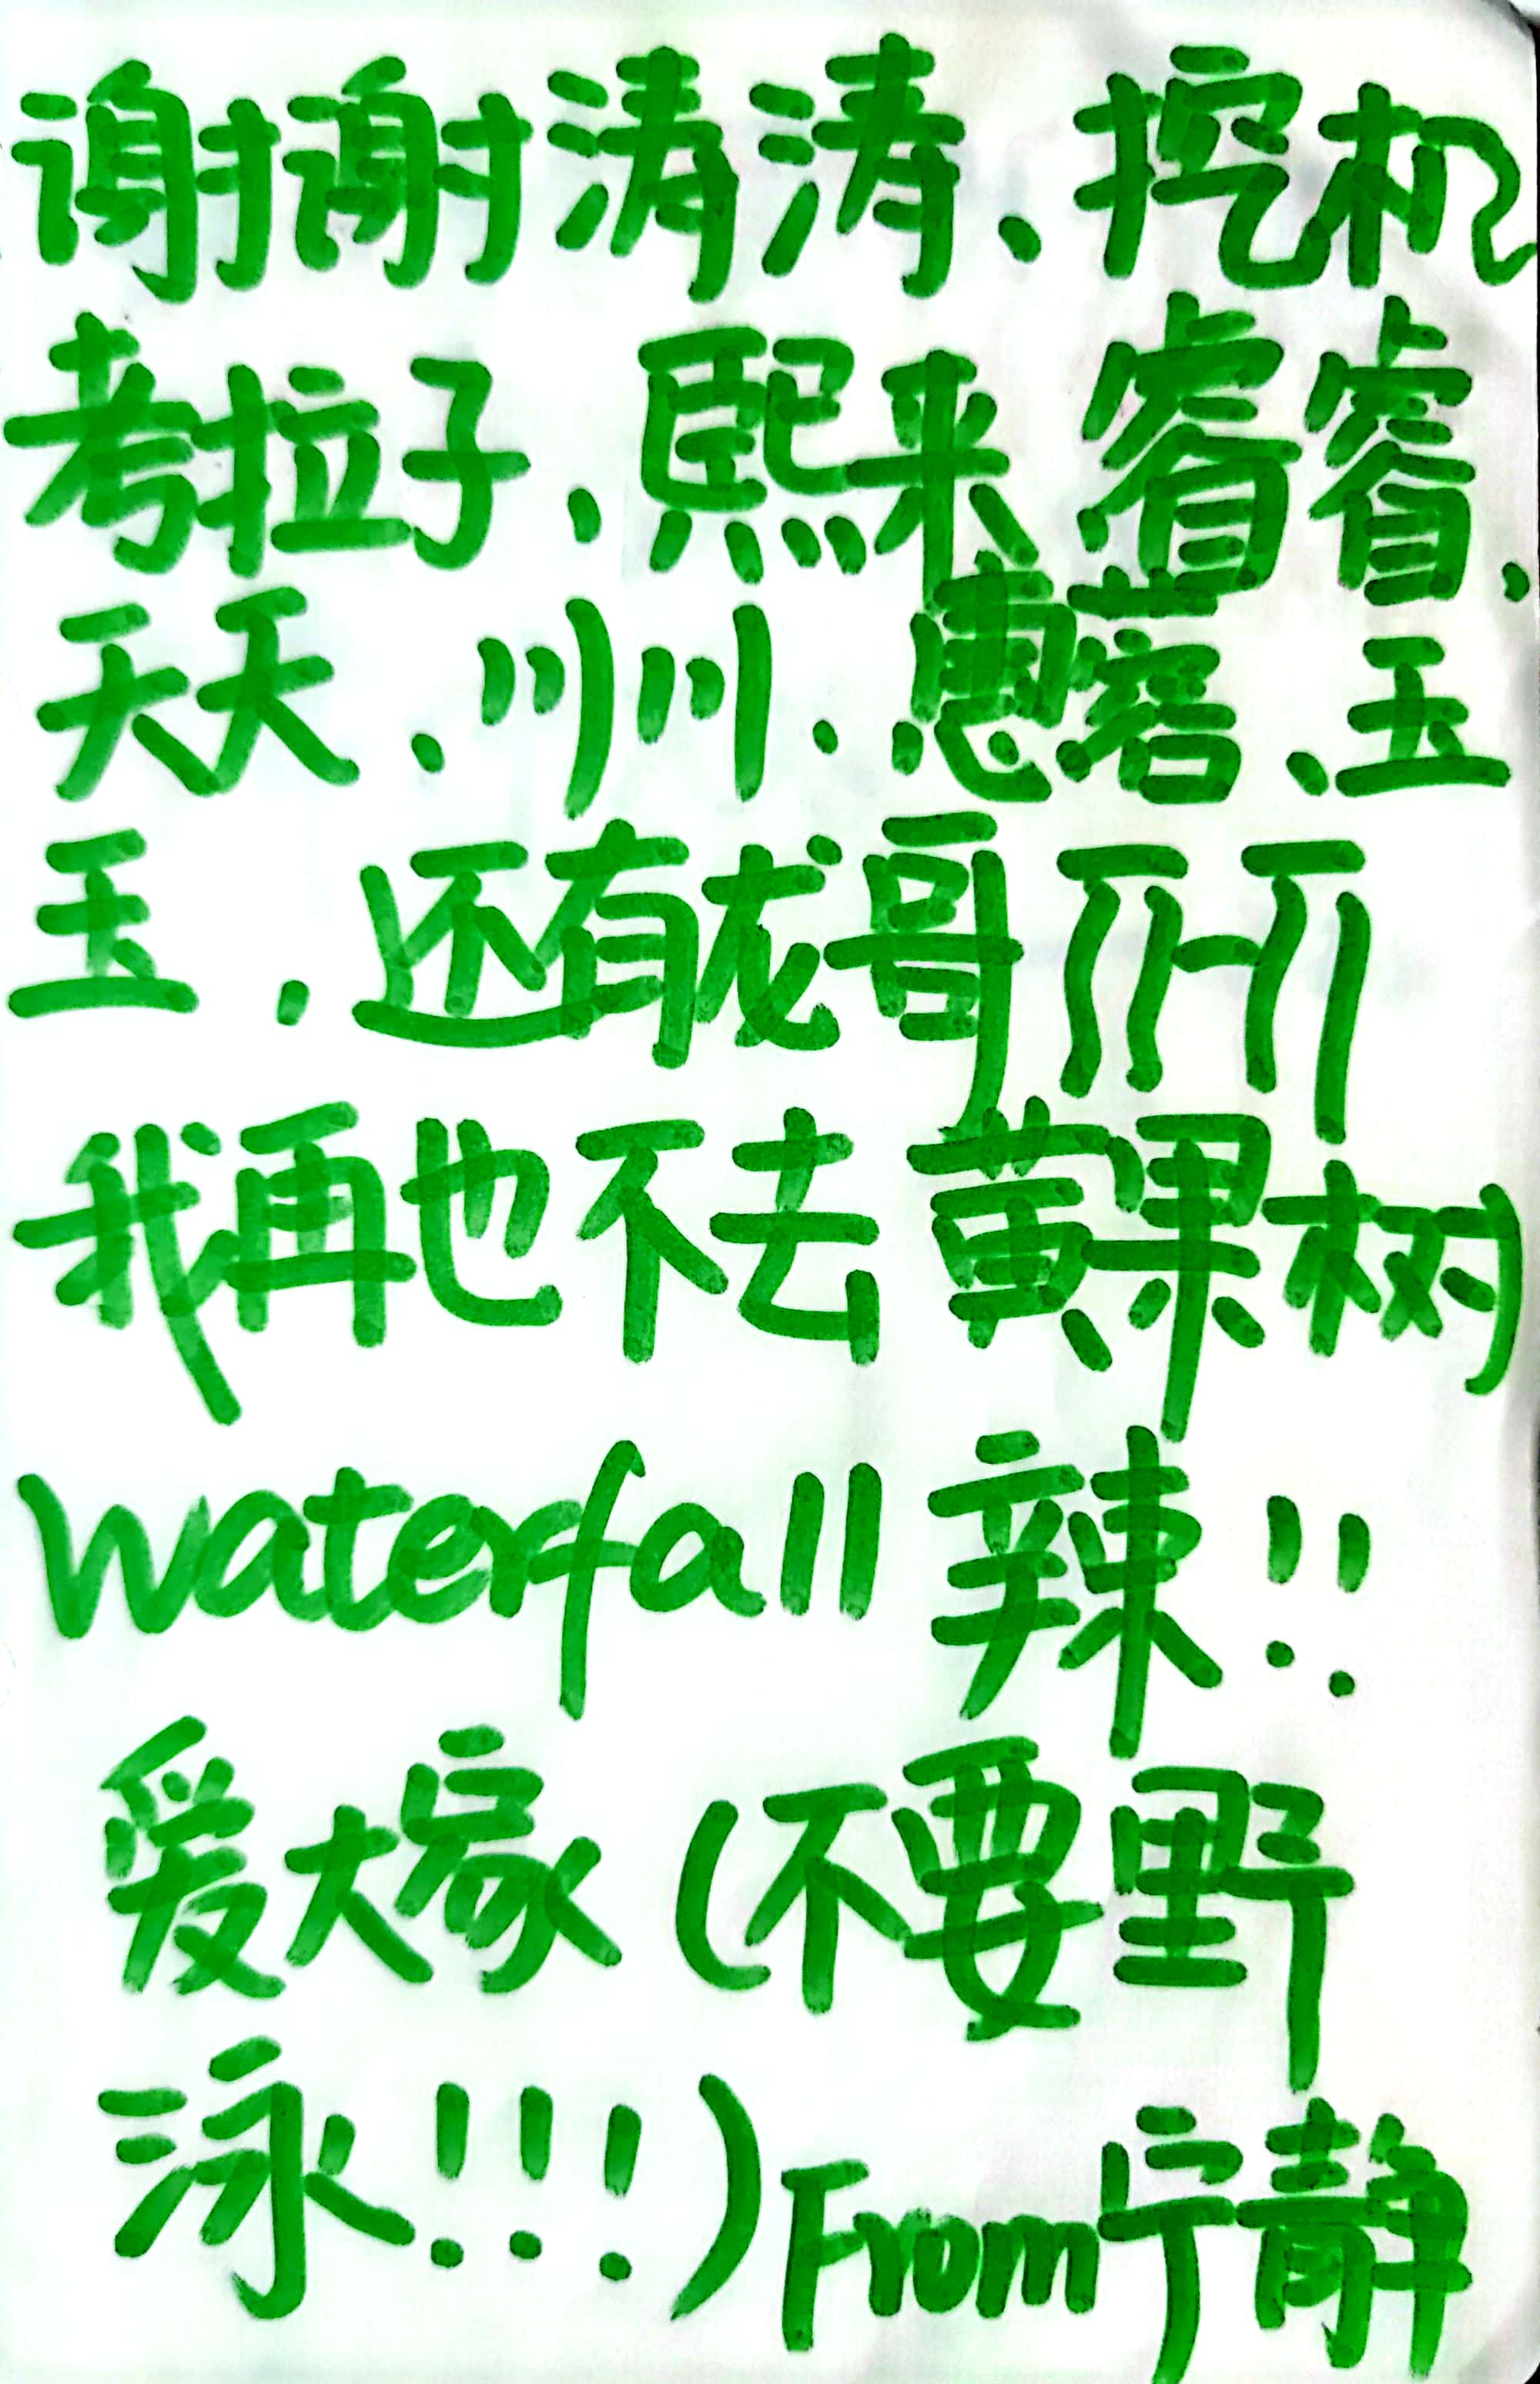 谢谢清涛、挖机
考拉子、熙来、睿睿、
天天、川川、惠蓉、玉
玉、还有龙哥
我再也不去黄果树
waterfall 辣!!
爱大家(不要野
泳!!!) From宁静